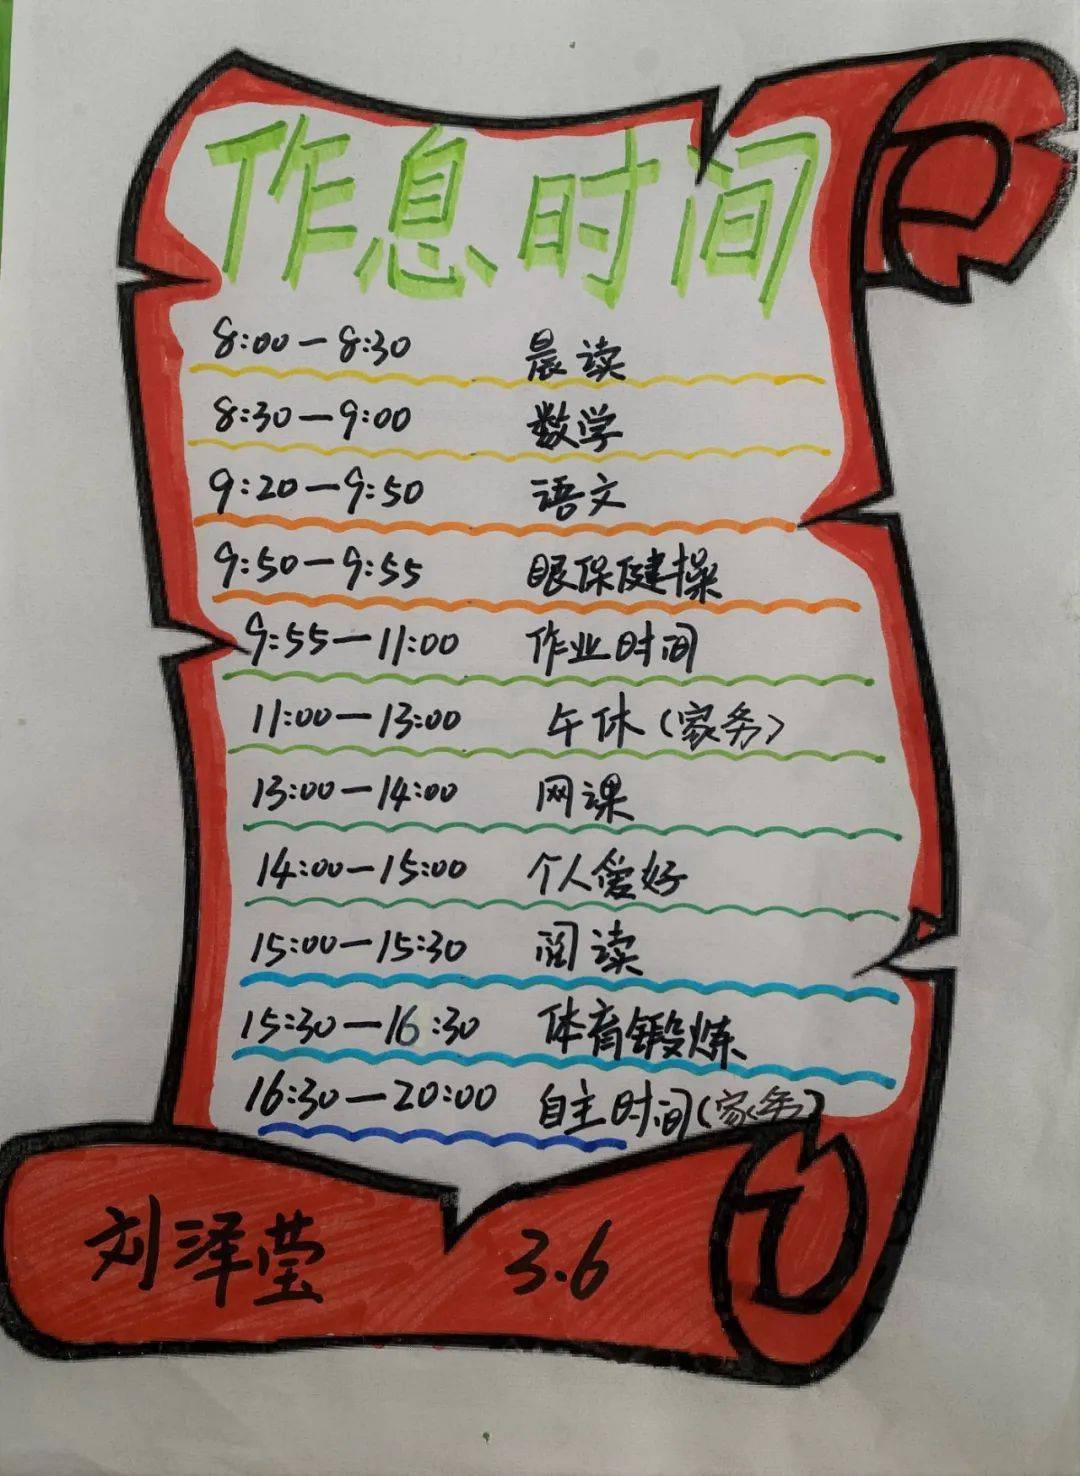 作息时间
8:00—8:30 晨读
8:30—9:00 数学
9:20—9:50 语文
9:50—9:55 眼保健操
9:55—11:00 作业时间
11:00—13:00 午休(家务)
13:00—14:00 网课
14:00—15:00 个人爱好
15:00—15:30 阅读
15:30—16:30 体育锻炼
16:30—20:00 自主时间(家务)
刘泽莹 3.6